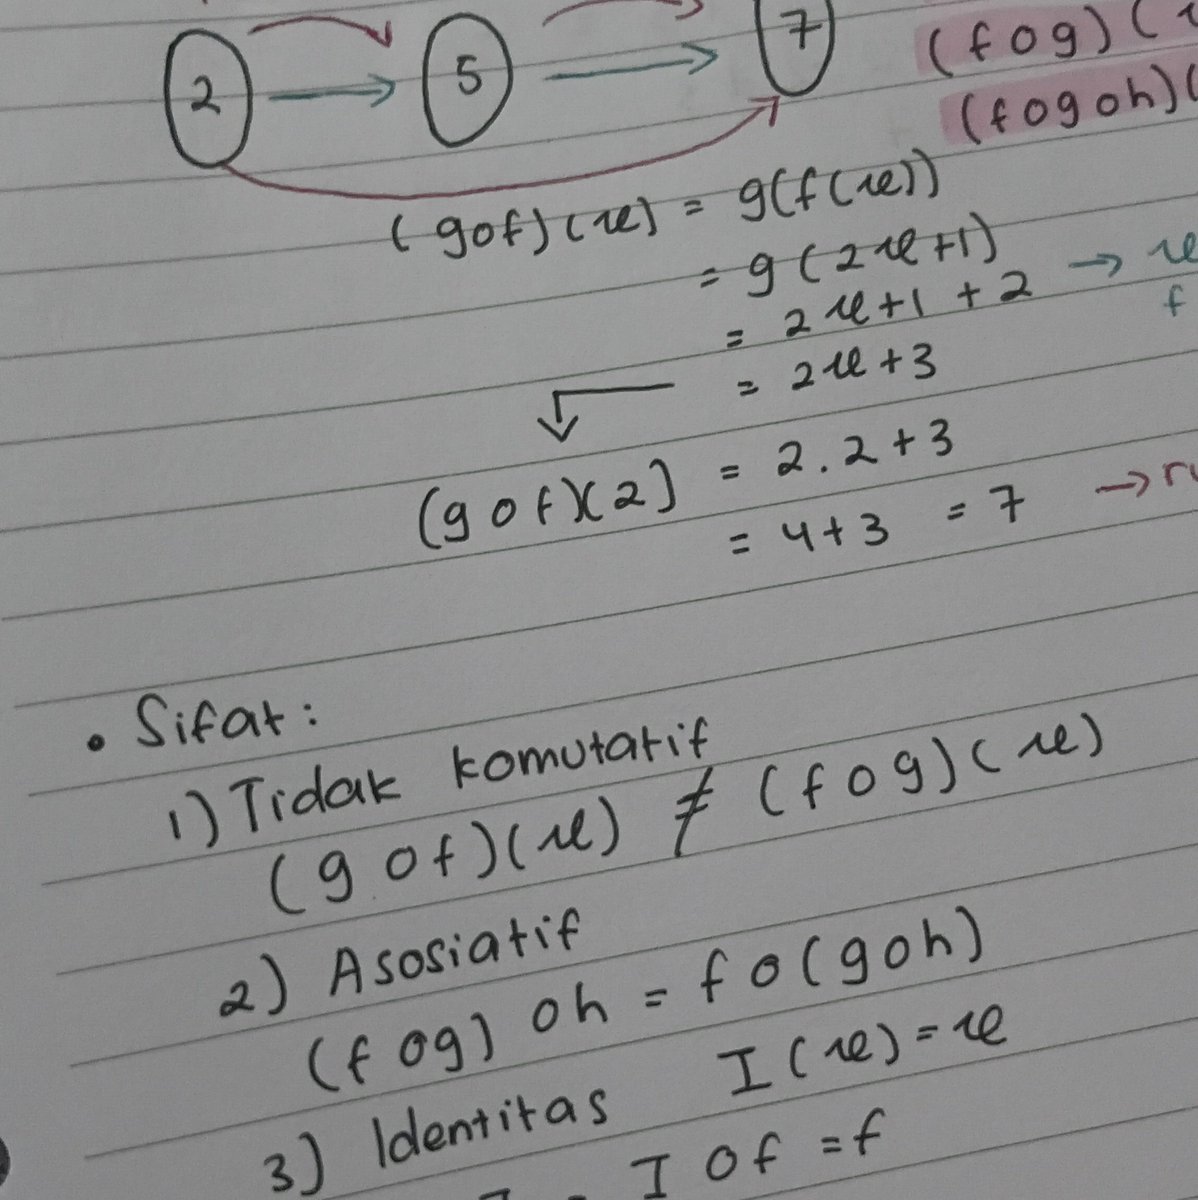 2 → 5 → 7
(fog)(
(fogoh)(
(gof)(x) = g(f(x))
= g(2x+1) → x
= 2x+1 + 2 f
= 2x+3
(gof)(2) = 2.2+3
= 4+3 = 7 →
• Sifat:
1) Tidak komutatif
(gof)(x) ≠ (fog)(x)
2) Asosiatif
(fog) oh = fo(goh)
3) Identitas I(x)=x
I of = f